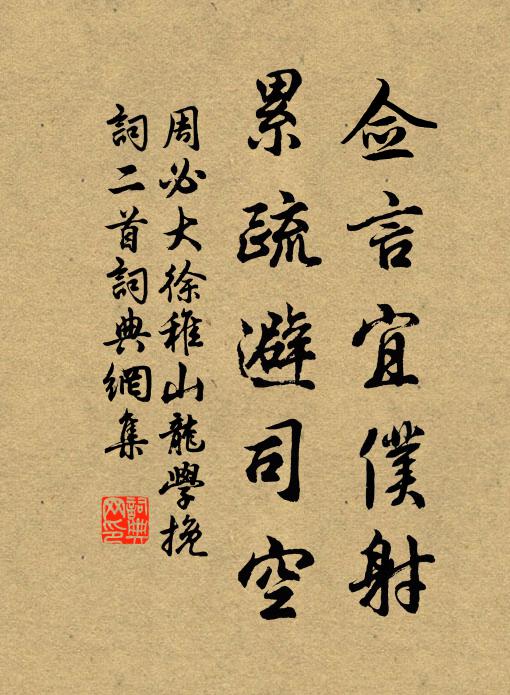 僉言宜僕射
累疏避司空
周必大徐稚山龍學挽
詞二首詞典網集
詞典
网印